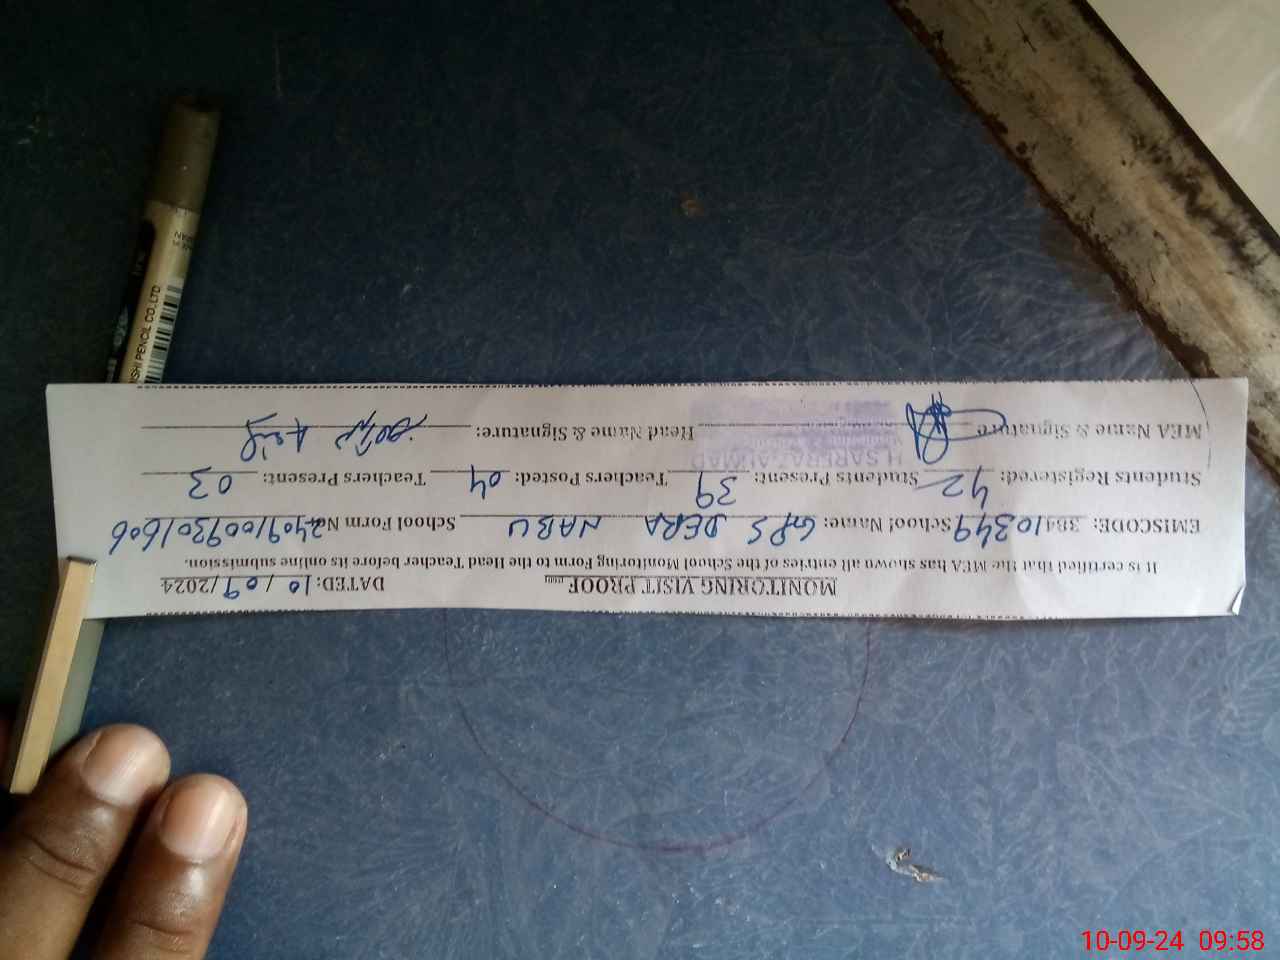 MONITORING VISIT PROOF
DATED: 10/09/2024
It is certified that the MEA has shown all entries of the School Monitoring Form to the Head Teacher before its online submission.
EMISCODE: 38410349 School Name: GPS DERA NABU School Form No 24091009301606
Students Registered: 42 Students Present: 39 Teachers Posted: 04 Teachers Present: 03
MEA Name & Signature Head Name & Signature:
H.SARFRAZ AHMAD
SHI PENCIL CO.,LTD
10-09-24 09:58